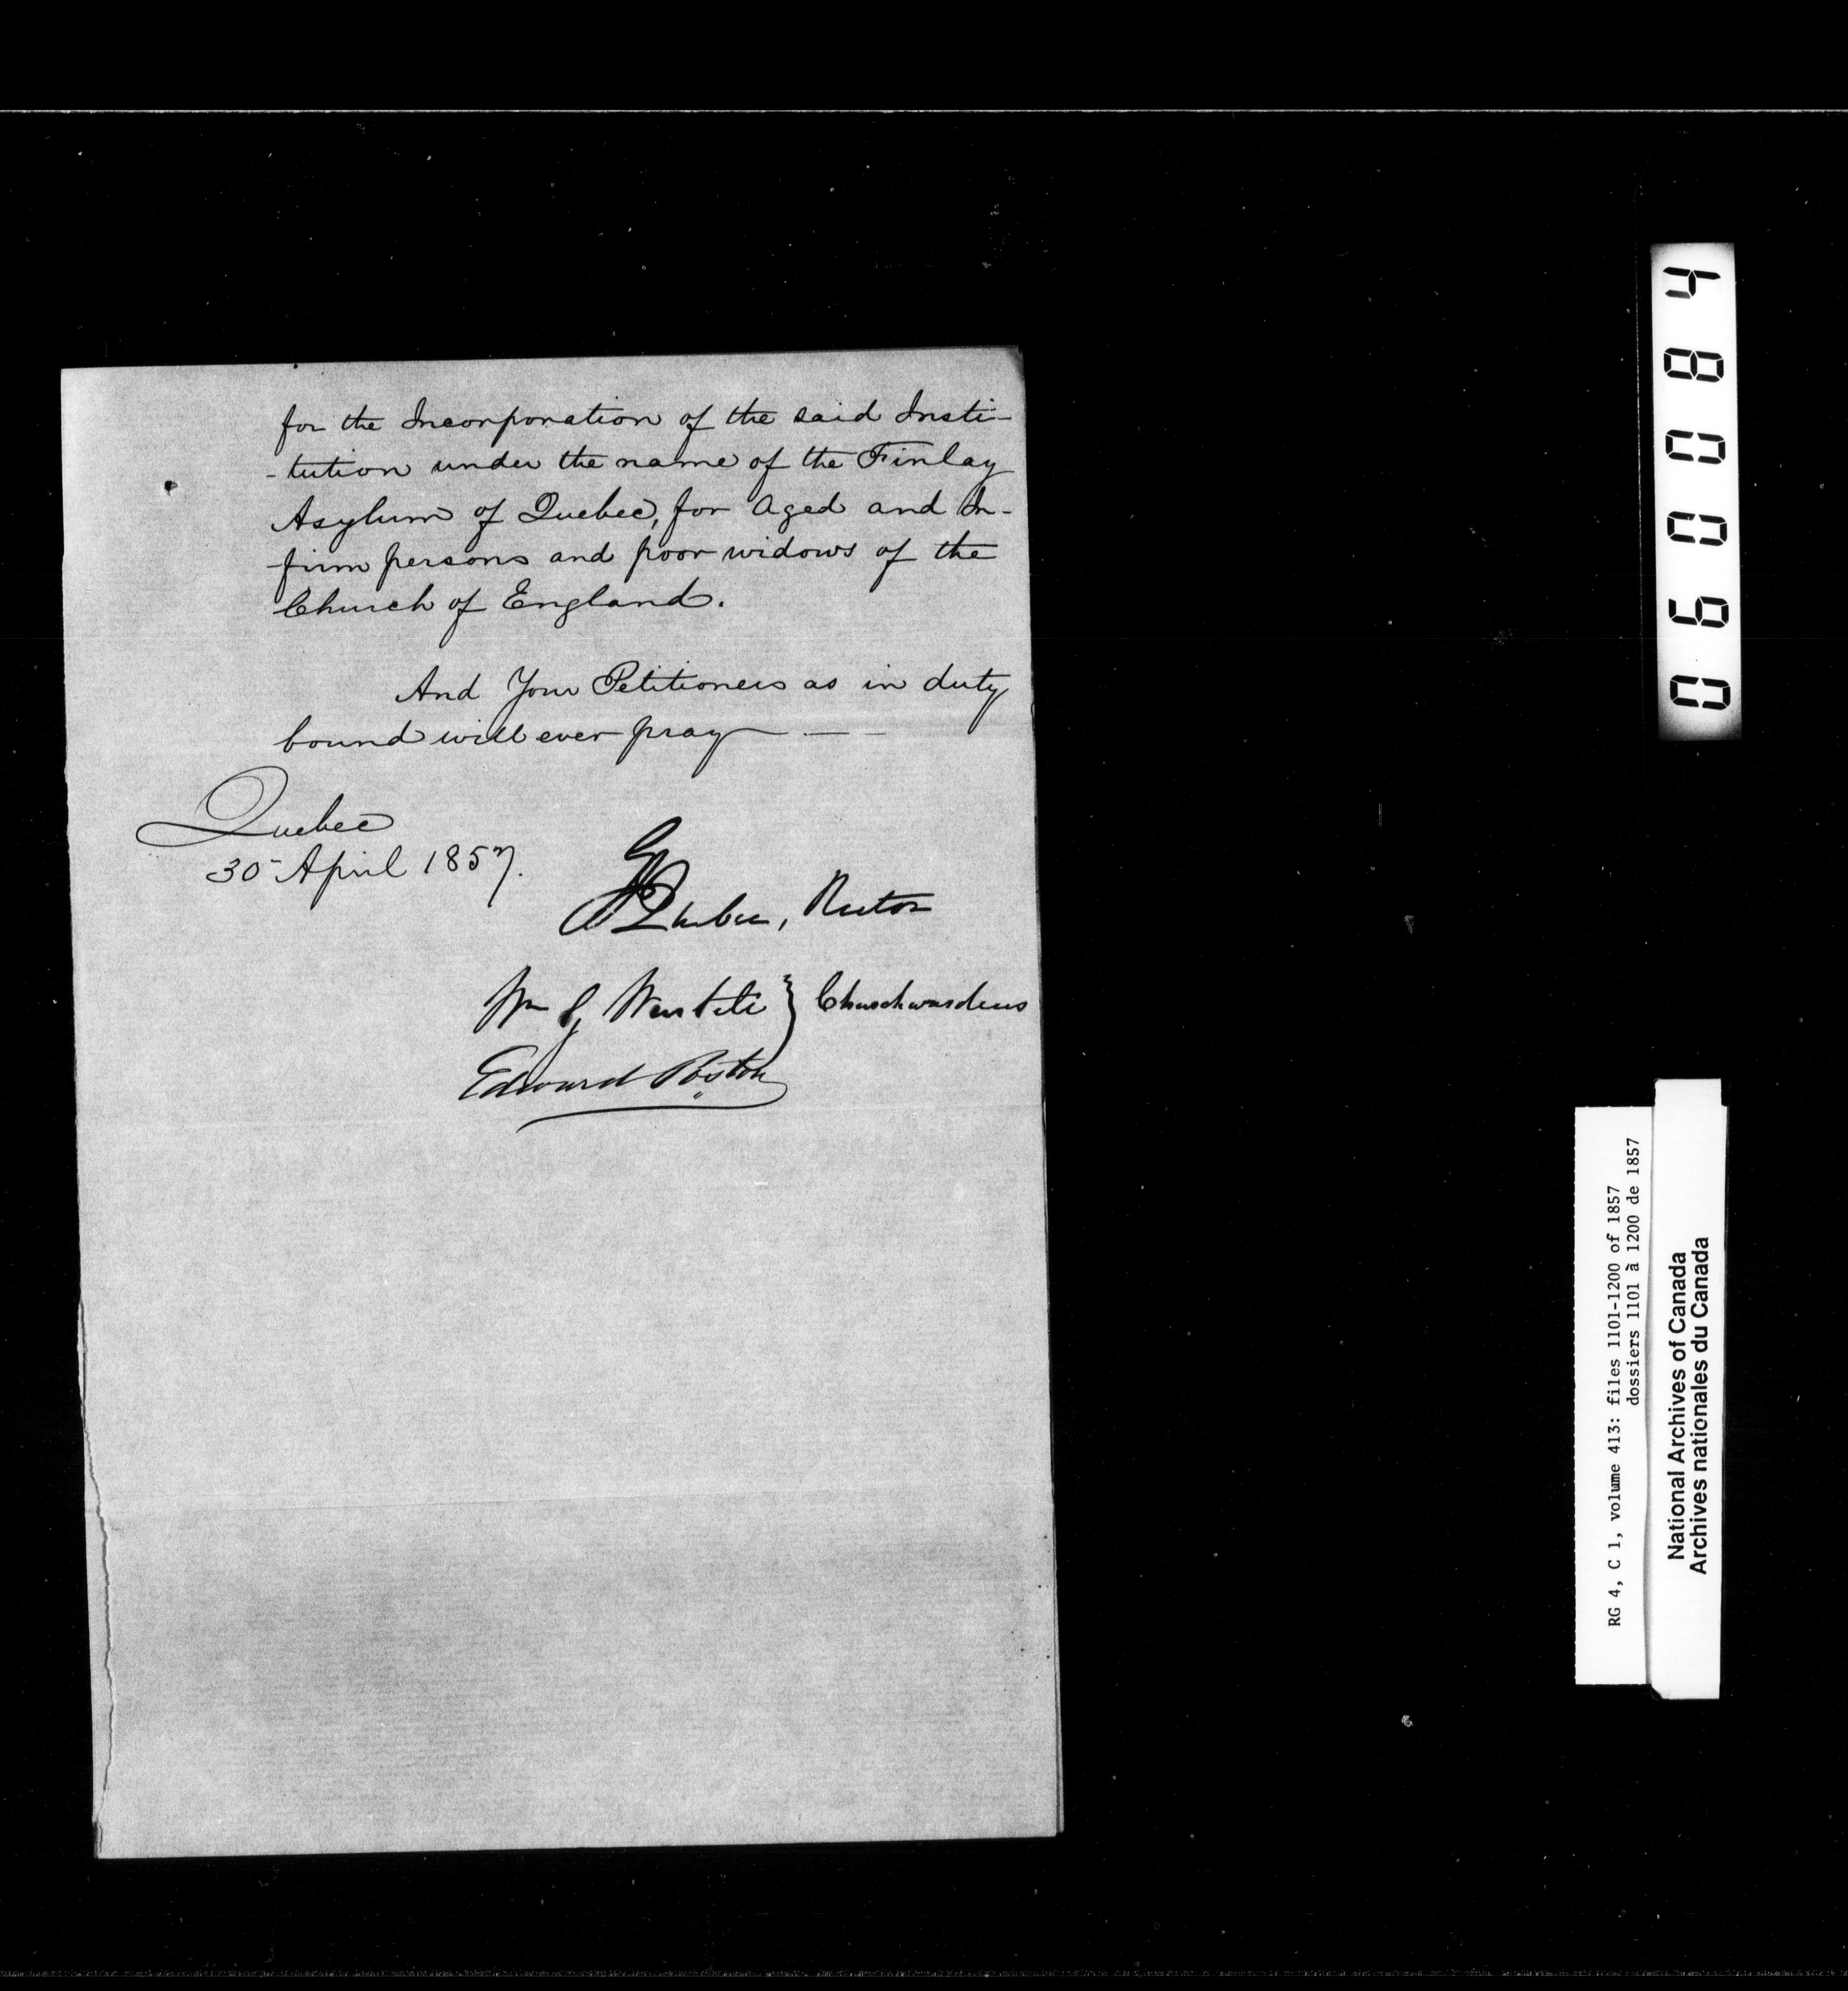 for the Incorporation of the said Insti-
-tution under the name of the Finlay
Asylum of Quebec, for Aged and In-
firm persons and poor widows of the
Church of England.
And Your Petitioners as in duty
bound will ever pray ——
Quebec
30 April 1857.
G J Quebec, Rector
Wm G Wurtele } Churchwardens
Edward Poston
060084
RG 4, C 1, volume 413: files 1101-1200 of 1857
dossiers 1101 à 1200 de 1857
National Archives of Canada
Archives nationales du Canada